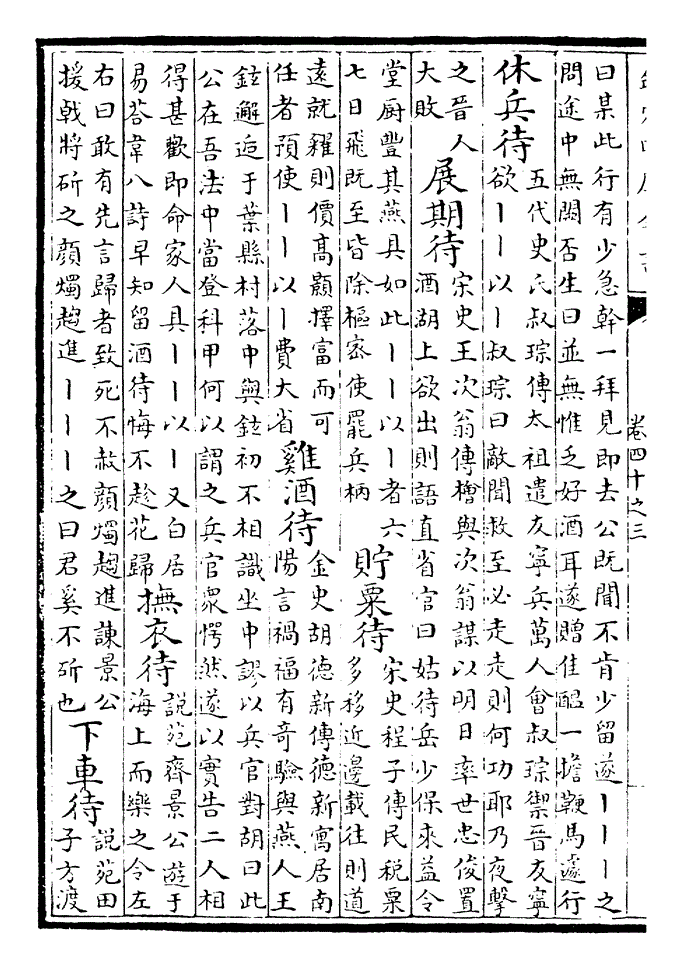 曰某此行有少急幹一拜見即去公既聞不肯少留遂丨丨丨之
問途中無闕否生曰並無惟乏好酒耳遂贈佳醖一擔鞭馬遽行
休兵待
五代史氏叔琮傳太祖遣友寧兵萬人會叔琮禦晉友寧
欲丨丨以丨叔琮曰敵聞救至必走走則何功耶乃夜擊
之晉人
大敗
展期待
宋史王次翁傳檜與次翁謀以明日率世忠俊置
酒湖上欲出則語直省官曰姑待岳少保來益令
堂厨豐其燕具如此丨丨以丨者六
七日飛既至皆除樞密使罷兵柄
貯粟待
宋史程子傳民税粟
多移近邊載往則道
遠就糴則價高顥擇富而可
任者預使丨丨以丨費大省
雞酒待
金史胡德新傳德新寓居南
陽言禍福有奇驗與燕人王
鉉邂逅于葉縣村落中與鉉初不相識坐中謬以兵官對胡曰此
公在吾法中當登科甲何以謂之兵官衆愕然遂以實告二人相
得甚歡即命家人具丨丨以丨又白居
易荅韋八詩早知留酒待悔不趁花歸
撫衣待
説苑齊景公遊于
海上而樂之令左
右曰敢有先言歸者致死不赦顔燭趨進諫景公
援戟將斫之顔燭趨進丨丨丨之曰君奚不斫也
下車待
説苑田
子方渡
卷四十之三